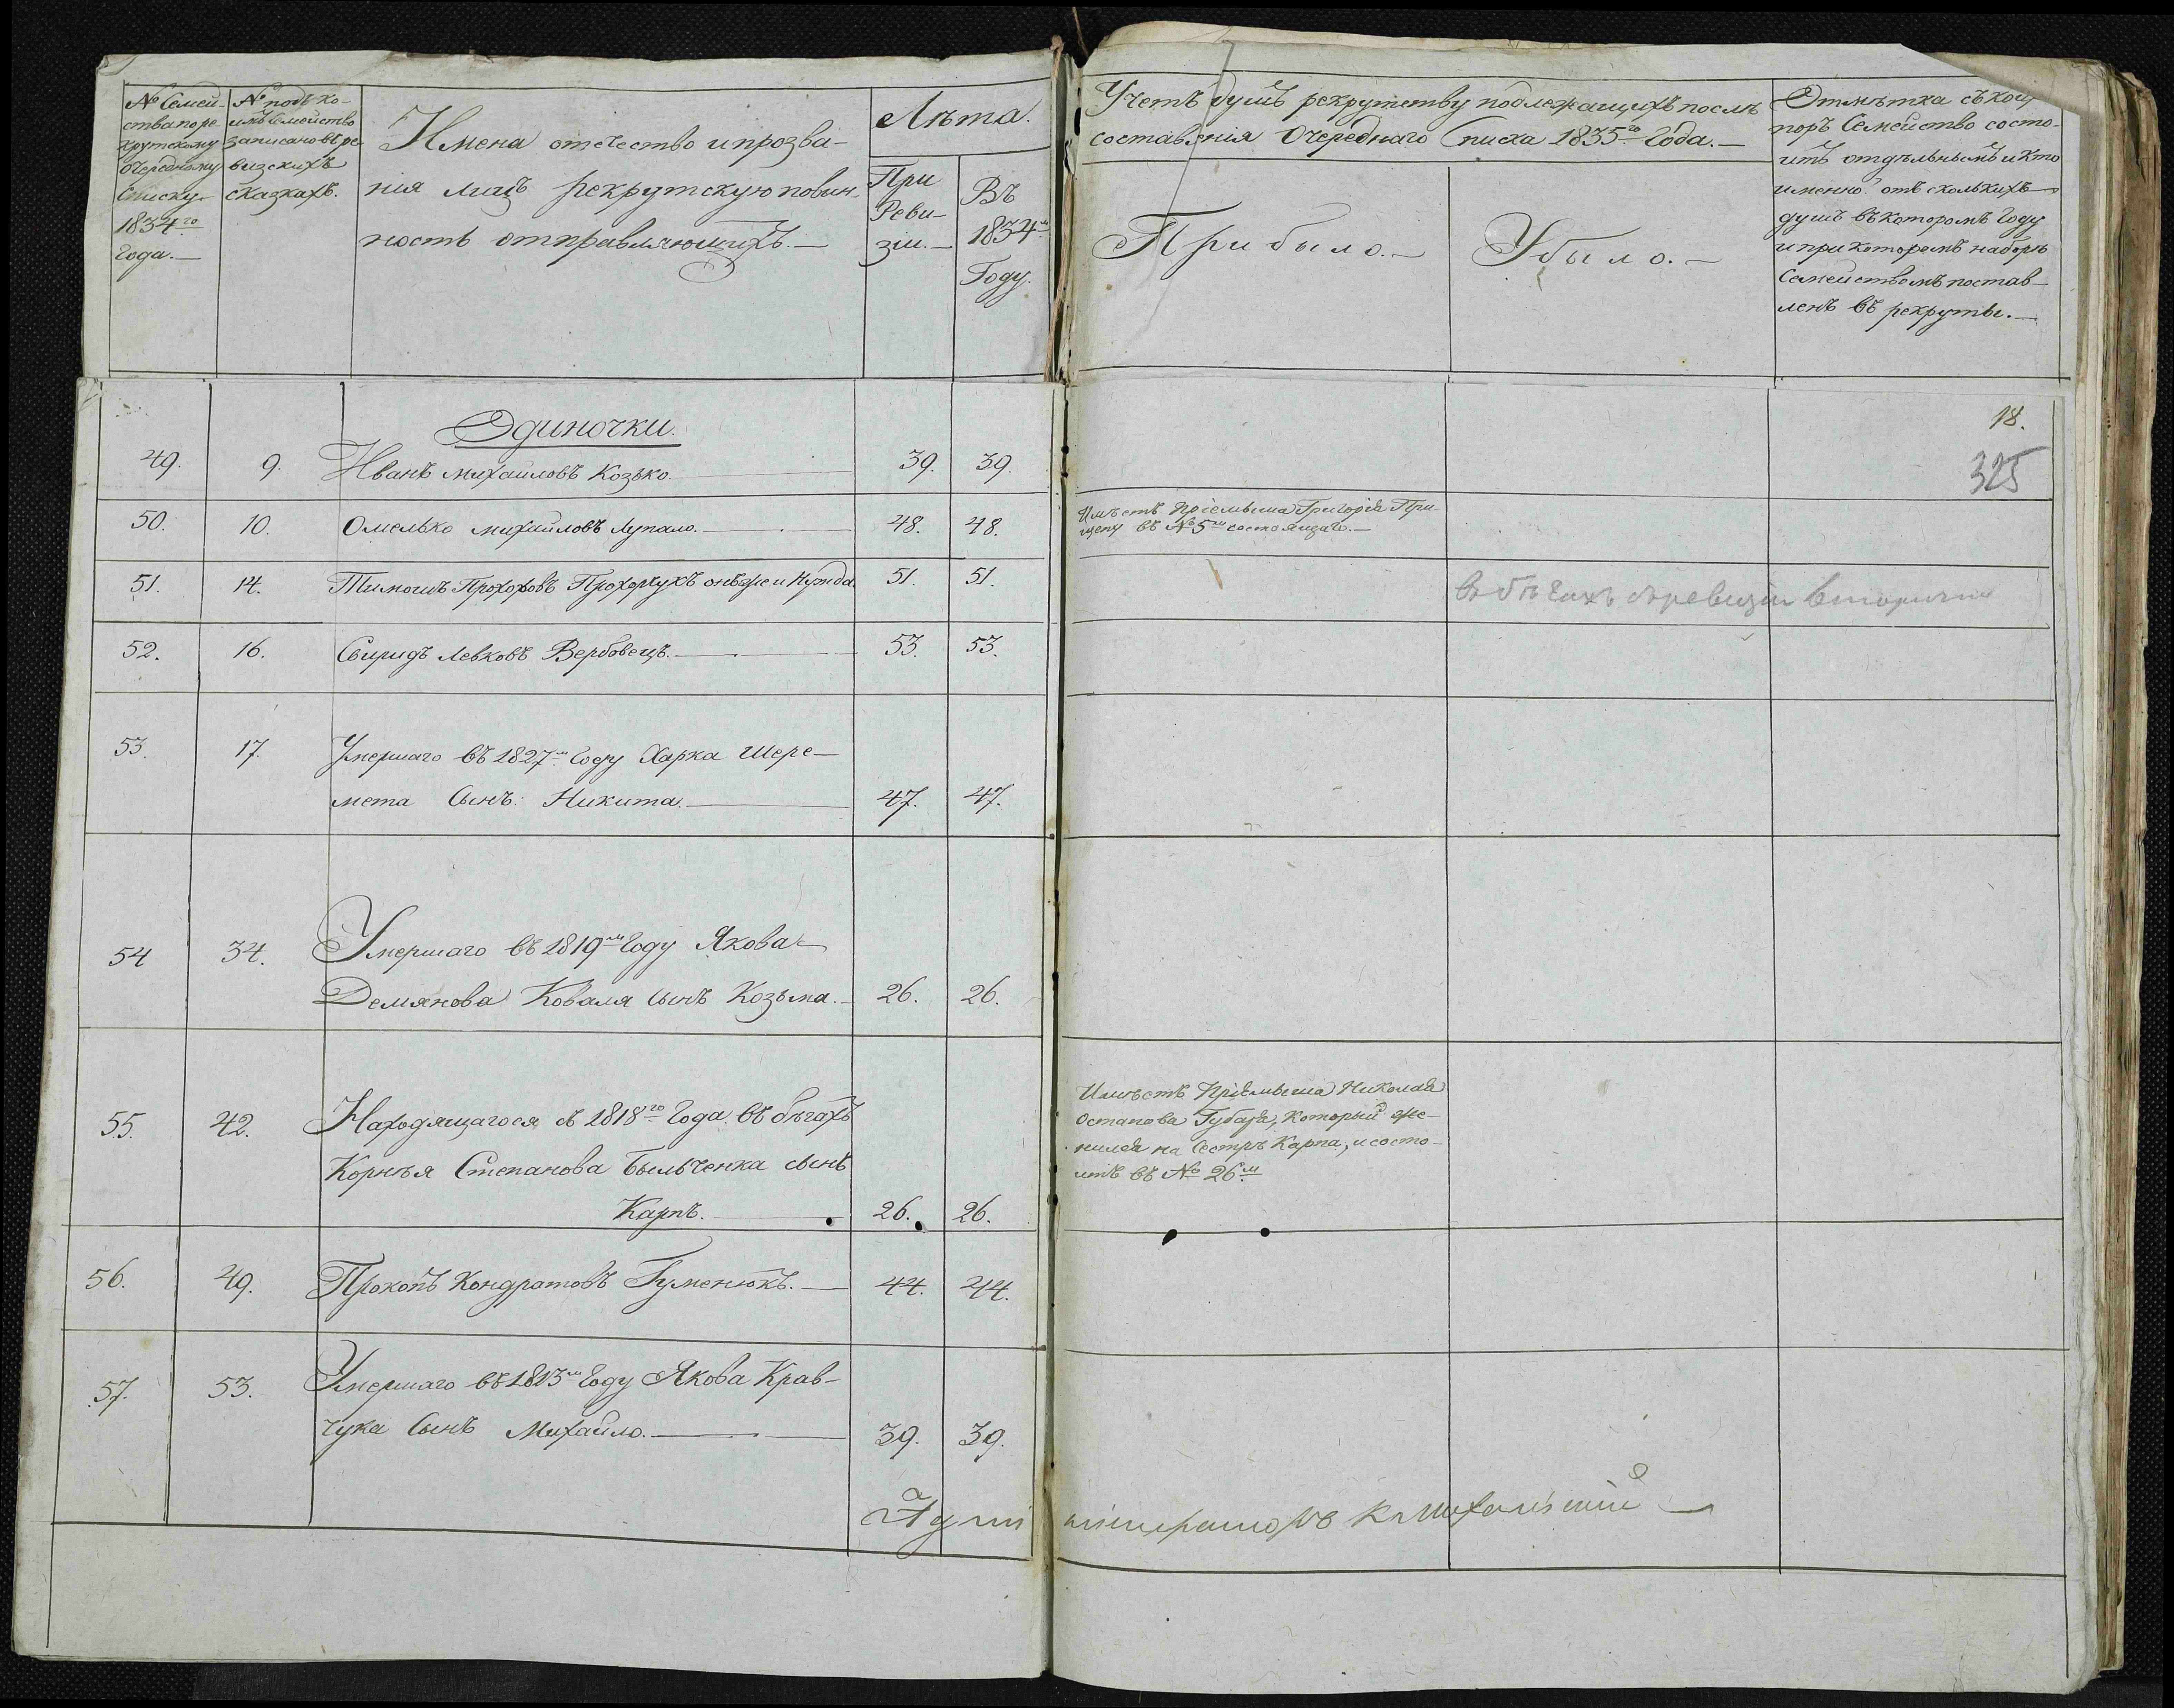 № Семей-
ства по ре-
крутскому
очередному
Списку
1834го
Года.—
№ подъ ко-
имъ Семейство
записано въ ре-
визскихъ
сказкахъ.
Имена отечество и прозва-
нія лицъ рекрутскую повин-
ность отправляющихъ.—
Лѣта.
При
Реви-
зіи.—
Въ
1834м
Году.
Учетъ душъ рекрутству подлежащихъ послѣ
составленія Очереднаго Списка 1835го Года.—
Прибыло.—
Убыло.—
Отмѣтка съ кои
поръ Семейство состо-
итъ отдѣльнымъ и кто
именно отъ сколькихъ
душъ въ которомъ Году
и при которомъ наборѣ
Семействомъ постав-
ленъ въ рекруты.—
18.
325
Одиночки.
49. 9. Иванъ Михайловъ Козько. 39. 39.
50. 10. Омелько Михайловъ Лупало. 48. 48.
Имѣетъ Пріемыша Григорія При-
щепу въ № 5м состоящаго.—
51. 14. Тимошъ Прохоровъ Прохорчукъ онъ же и Нужда 51. 51.
въ бѣгахъ съ ревизіи вторично
52. 16. Свиридъ Левковъ Вербовецъ. 53. 53.
53. 17. Умершаго въ 1827м Году Харка Шере-
мета Сынъ: Никита. 47. 47.
54 34. Умершаго въ 1819м Году Якова
Демянова Коваля сынъ Козьма. 26. 26.
55. 42. Находящагося съ 1818го Года въ бѣгахъ
Корнѣя Степанова Быльченка сынъ
Карпъ. 26. 26.
Имѣетъ Пріемыша Николая
Остапова Губаря, который же-
нился на Сестрѣ Карпа, и состо-
итъ въ № 26м
56. 49. Прокопъ Кондратовъ Гуменюкъ. 44. 44.
57. 53. Умершаго въ 1813м Году Якова Крав-
чука Сынъ Михайло. 39. 39.